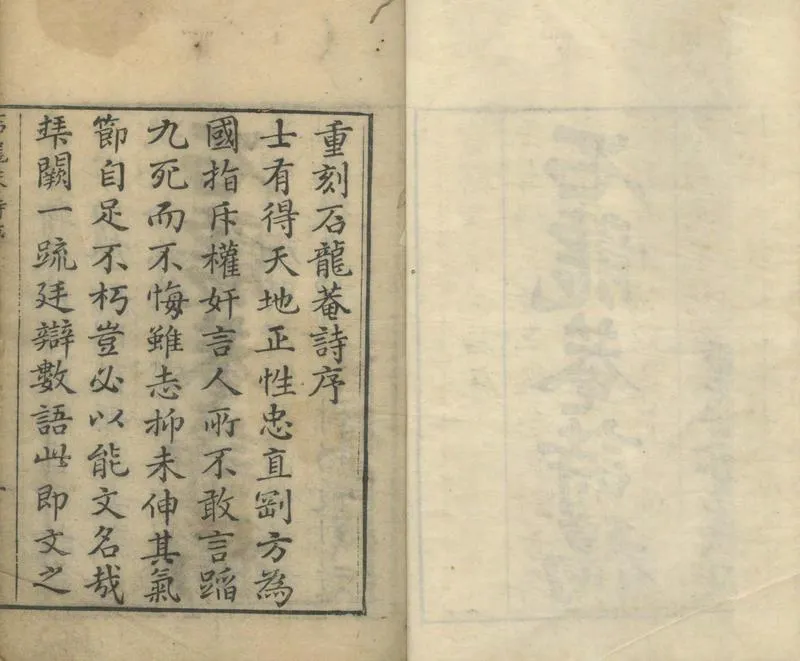 重刻石龍菴詩序
士有得天地正性忠直剛方為
國指斥權奸言人所不敢言蹈
九死而不悔雖志抑未伸其氣
節自足不朽豈必以能文名哉
琹闕一疏廷辯數語此即文之